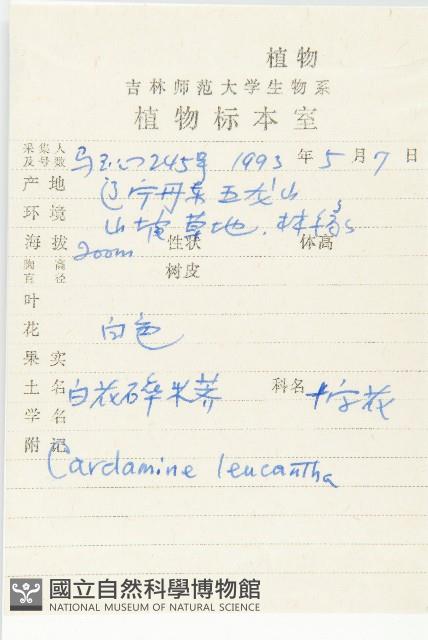 植物
吉林师范大学生物系
植物标本室
采集人及号数 245号 1993 年 5 月 7 日
产地 辽宁丹东五龙山
环境 山坡草地.林缘
海拔 200m 性状 体高
胸高直径 树皮
叶
花 白色
果实
土名 白花碎米荠 科名 十字花
学名
附记
Cardamine leucantha
國立自然科學博物館
NATIONAL MUSEUM OF NATURAL SCIENCE